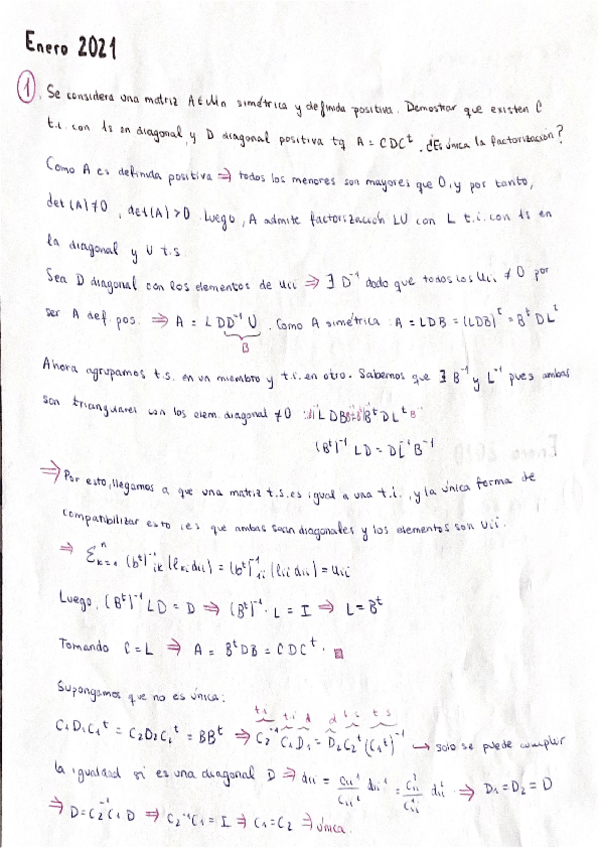 Enero 2021
1. Se considera una matriz A∈Mn simétrica y definida positiva. Demostrar que existen C
t.i. con 1s en diagonal, y D diagonal positiva tq A = CDCᵗ. ¿Es única la factorización?
Como A es definida positiva ⇒ todos los menores son mayores que 0, y por tanto,
det(A)≠0, det(A)>0. Luego, A admite factorización LU con L t.i. con 1s en
la diagonal y U t.s.
Sea D diagonal con los elementos de uii ⇒ ∃ D⁻¹ dado que todos los uii ≠ 0 por
ser A def. pos. ⇒ A = LDD⁻¹U. Como A simétrica: A = LDB = (LDB)ᵗ = BᵗDLᵗ
B
Ahora agrupamos t.s. en un miembro y t.i. en otro. Sabemos que ∃ B⁻¹ y L⁻¹ pues ambas
son triangulares con los elem. diagonal ≠0 : LDB = BᵗDLᵗ
(Bᵗ)⁻¹ LD = DLᵗB⁻¹
⇒ Por esto, llegamos a que una matriz t.s. es igual a una t.i., y la única forma de
compatibilizar esto, es que ambas sean diagonales y los elementos son uii.
⇒ Σₖ₌₁ⁿ (bᵗ)⁻¹ik (lki dii) = (bᵗ)⁻¹ii (lii dii) = uii
Luego, (Bᵗ)⁻¹ LD = D ⇒ (Bᵗ)⁻¹ · L = I ⇒ L = Bᵗ
Tomando C = L ⇒ A = BᵗDB = CDCᵗ.
Supongamos que no es única:
t.i. t.i. d d t.s. t.s.
C₁D₁C₁ᵗ = C₂D₂C₂ᵗ = BBᵗ ⇒ C₂⁻¹C₁D₁ = D₂C₂ᵗ(C₁ᵗ)⁻¹ → solo se puede cumplir
la igualdad si es una diagonal D ⇒ dii = ⇒ D₁ = D₂ = D
⇒ D = C₂⁻¹C₁D ⇒ C₂⁻¹C₁ = I ⇒ C₁ = C₂ ⇒ única.